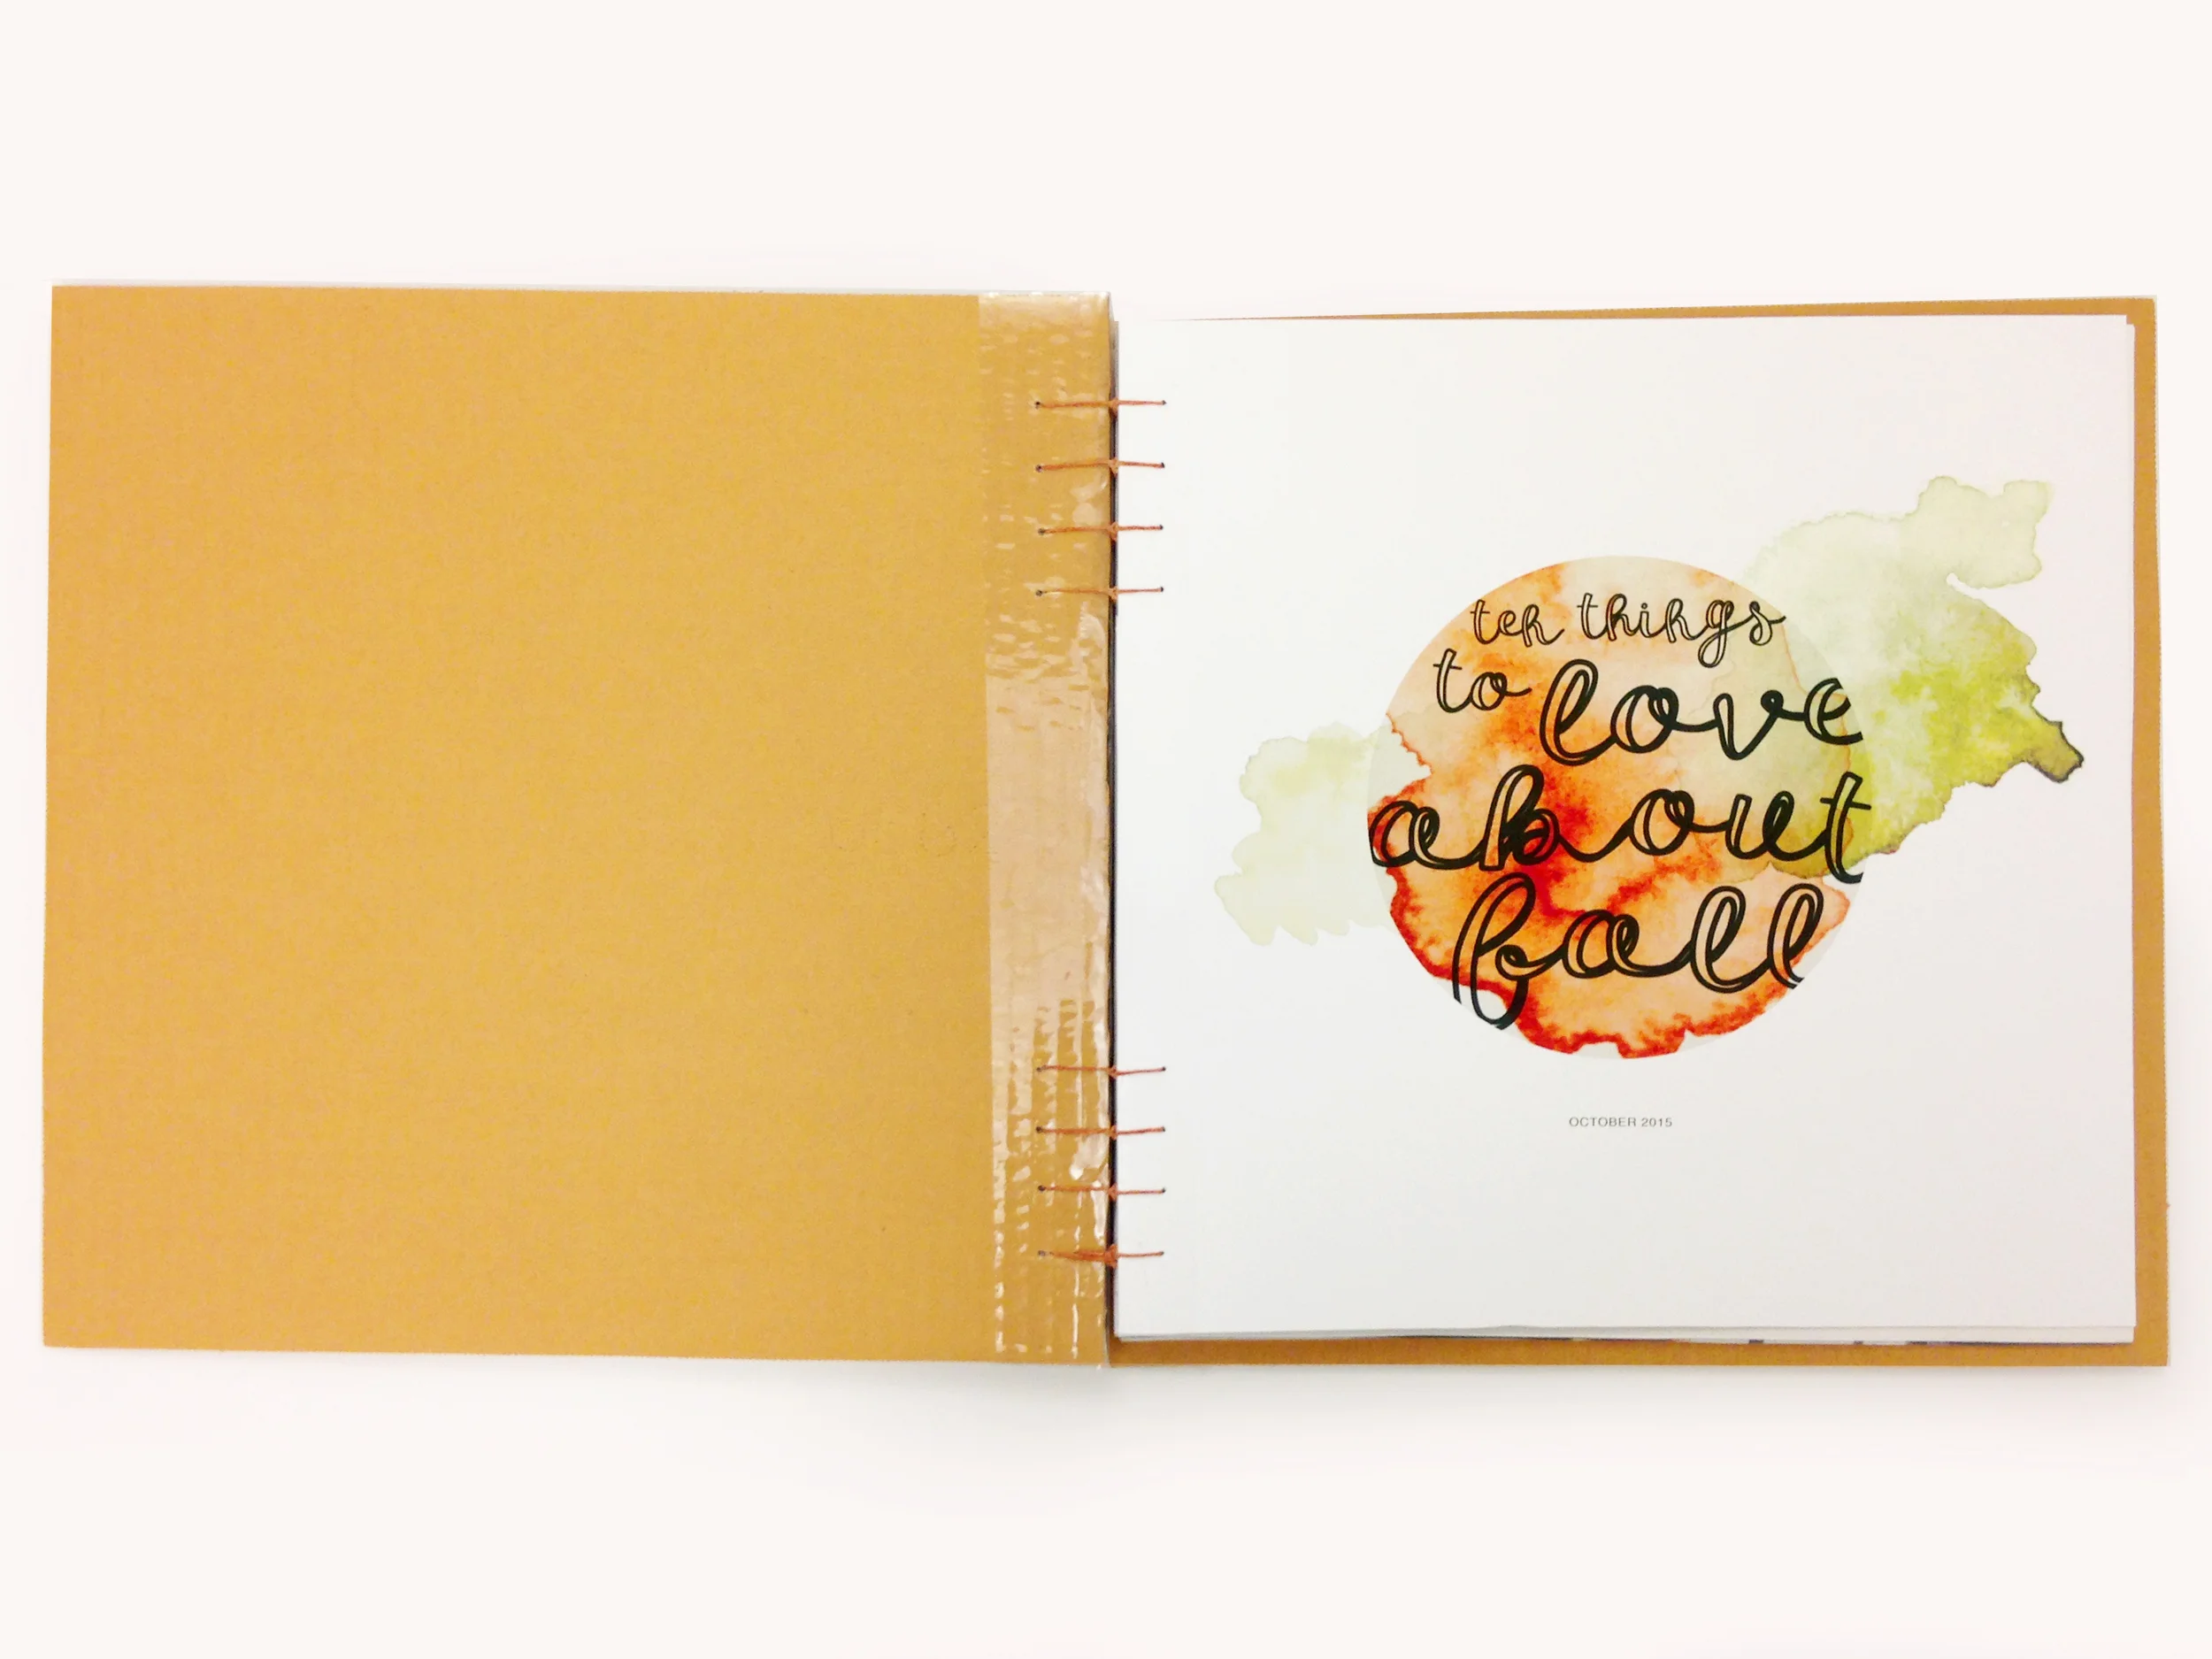 ten things
to love
about
fall
OCTOBER 2015